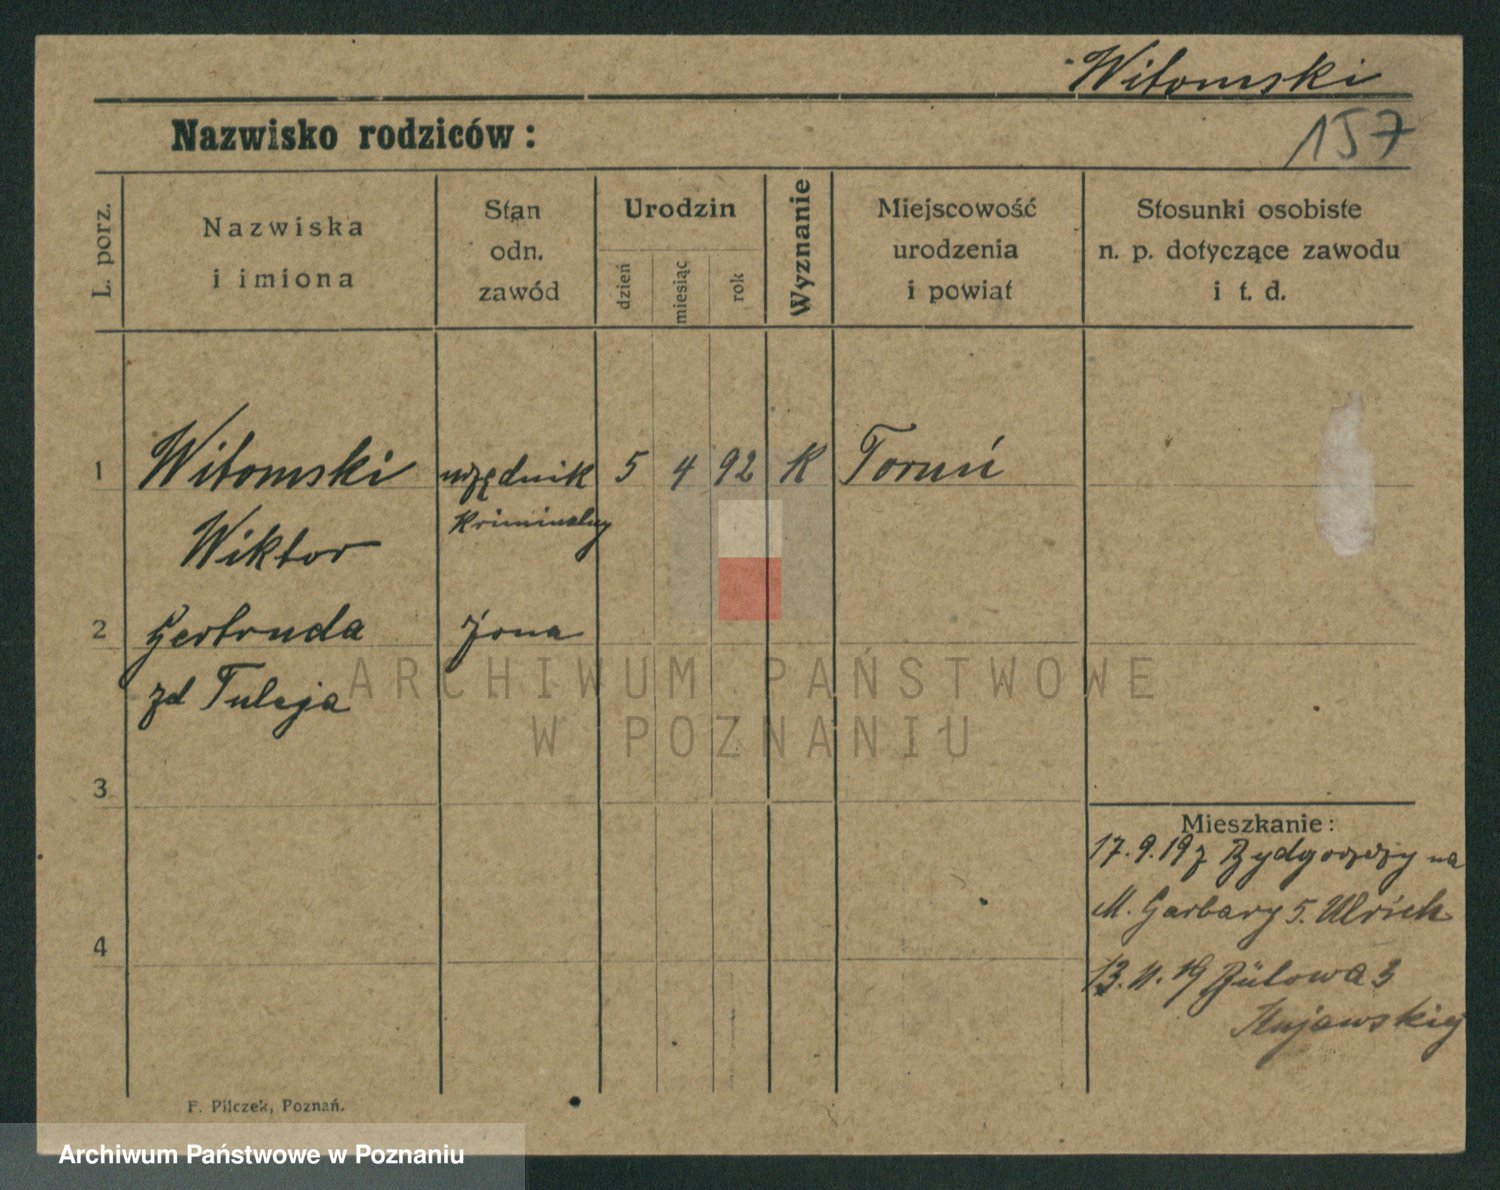 Witomski
Nazwisko rodziców:
157
L. porz.
Nazwiska
i imiona
Stan
odn.
zawód
Urodzin
dzień
miesiąc
rok
Wyznanie
Miejscowość
urodzenia
i powiat
Stosunki osobiste
n. p. dotyczące zawodu
i t. d.
1 Witomski urzędnik 5 4 92 K Toruń
Wiktor kriminalny
2 Gertruda żona
zd Tuleja
ARCHIWUM PAŃSTWOWE
W POZNANIU
3
Mieszkanie:
17.9.19 z Bydgoszczy na
M. Garbary 5. Ulrich
4
13.11.19 Bülowa 3
Kujawskiej
F. Pilczek, Poznań.
Archiwum Państwowe w Poznaniu